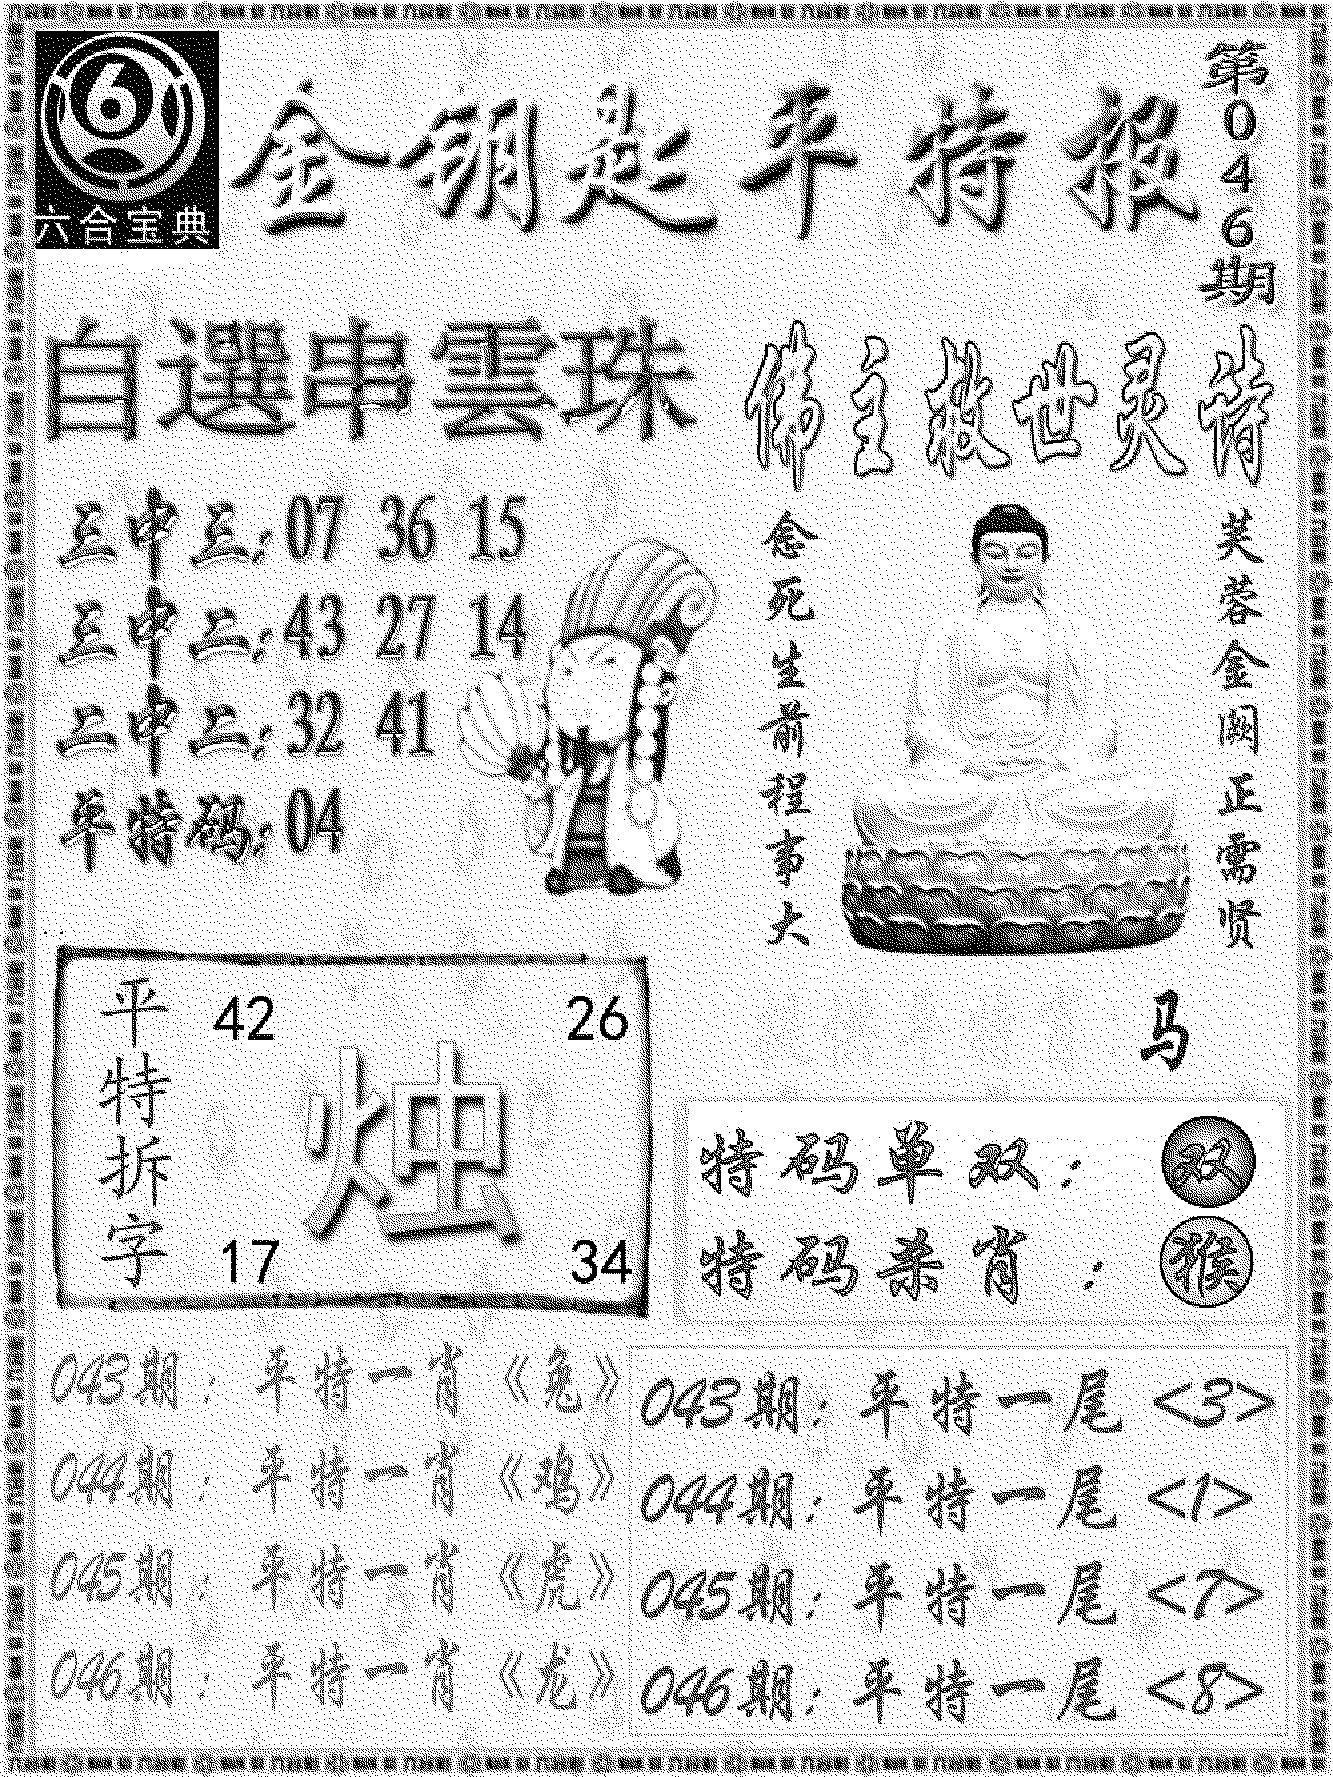 6
六合宝典
金钥匙平特报
第046期
自選串雲珠
三中三:07 36 15
三中二:43 27 14
二中二:32 41
单特码:04
佛主救世灵诗
芙蓉金阙正需贤
念死生前程事大
马
平特拆字
42 26
烛
17 34
特码单双: 双
特码杀肖: 猴
043期: 平特一肖《兔》
044期: 平特一肖《鸡》
045期: 平特一肖《虎》
046期: 平特一肖《龙》
043期: 平特一尾<3>
044期: 平特一尾<1>
045期: 平特一尾<7>
046期: 平特一尾<8>